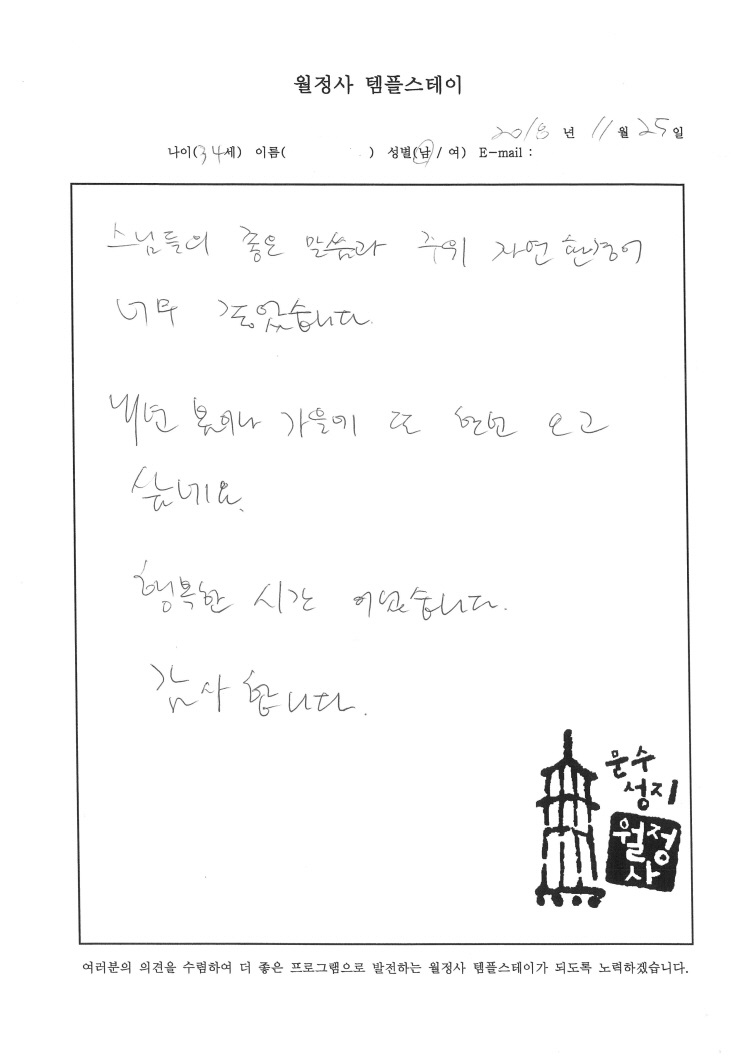 월정사 템플스테이
2018 년 11 월 25 일
나이(34세) 이름( ) 성별(남 / 여) E-mail :
스님들의 좋은 말씀과 주위 자연 환경이
너무 좋았습니다.
내년 봄이나 가을에 또 한번 오고
싶네요.
행복한 시간 이었습니다.
감사 합니다.
문수
성지
월정
사
여러분의 의견을 수렴하여 더 좋은 프로그램으로 발전하는 월정사 템플스테이가 되도록 노력하겠습니다.